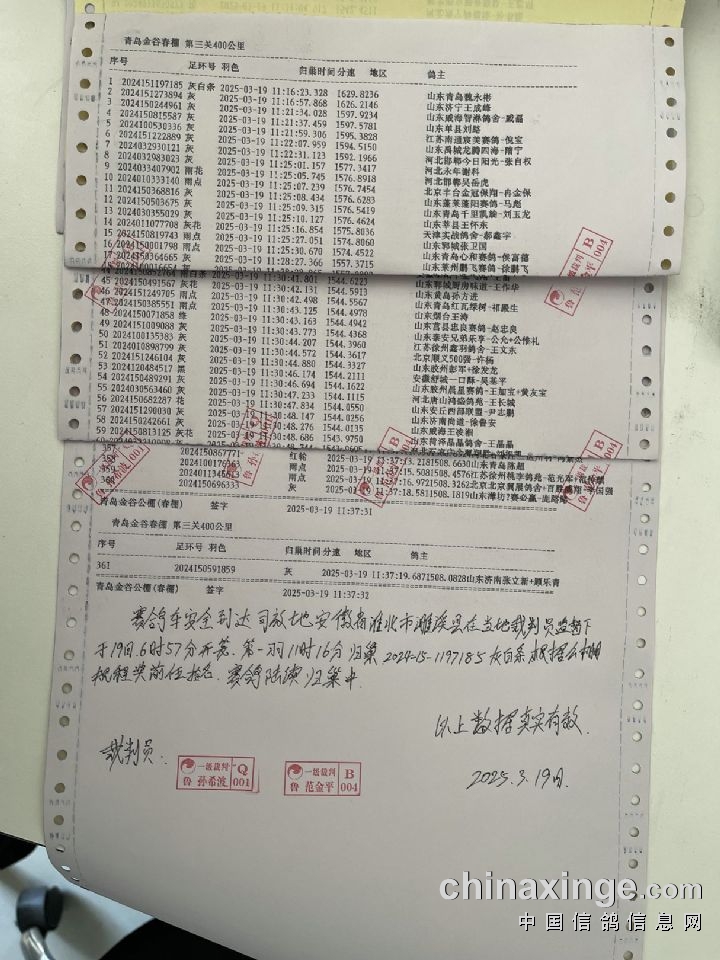 青岛金谷春棚 第三关400公里
序号 足环号 羽色 归巢时间 分速 地区 鸽主
1 2024151197185 灰白条 2025-03-19 11:16:23.328 1629.8236 山东青岛魏永彬
2 2024151273894 灰 2025-03-19 11:16:57.868 1626.2146 山东济宁王成峰
3 2024150244961 灰 2025-03-19 11:21:34.028 1597.9234 山东威海智淋鸽舍-戚磊
4 2024150815587 灰 2025-03-19 11:21:37.459 1597.5781 山东单县刘路
5 2024100530336 灰 2025-03-19 11:21:59.306 1595.3828 江苏南通宸美赛鸽-倪宝
6 2024151222889 灰 2025-03-19 11:22:07.959 1594.5150 山东禹城龙腾四海-隋宁
7 2024032930121 灰 2025-03-19 11:22:31.123 1592.1966 河北邯郸今日阳光-张自权
8 2024032983023 灰 2025-03-19 11:25:01.157 1577.3417 河北永年谢科
9 2024033407902 雨花 2025-03-19 11:25:05.745 1576.8918 河北邯郸吴岳虎
10 2024010333140 雨点 2025-03-19 11:25:07.239 1576.7454 北京丰台金冠保翔-冉金保
11 2024150368816 灰 2025-03-19 11:25:08.434 1576.6283 山东蓬莱蓬阳赛鸽-马彪
12 2024150503675 灰 2025-03-19 11:25:09.315 1576.5419 山东青岛千里凯旋-刘玉龙
13 2024030355029 灰 2025-03-19 11:25:10.127 1576.4624 山东莘县王怀东
14 2024011077708 灰花 2025-03-19 11:25:16.854 1575.8036 天津实战鸽舍-郝鑫宇
15 2024150819743 雨点 2025-03-19 11:25:27.051 1574.8060 山东郓城张卫国
16 2024150001798 雨点 2025-03-19 11:25:30.670 1574.4522 山东青岛心和赛鸽-侯富德
17 灰 2025-03-19 11:28:21.366 1557.3715 山东莱州鹏飞赛鸽-徐鹏飞
雨白条 11:30:41.801 1544.6223 山东郓城厨房味道-王作华
45 2024150491567 灰花 2025-03-19 11:30:42.131 1544.5913 山东黄岛孙方进
46 2024151249705 雨点 2025-03-19 11:30:42.498 1544.5567 山东青岛红瓦绿树-祁殿生
47 2024150385551 雨点 2025-03-19 11:30:43.125 1544.4978 山东烟台王涛
48 2024150071858 绛 2025-03-19 11:30:43.163 1544.4942 山东莒县忠良赛鸽-赵忠良
49 2024151009088 灰 2025-03-19 11:30:43.773 1544.4368 山东泰安兄弟乐享-公允+公惟礼
50 2024100135383 灰 2025-03-19 11:30:44.207 1544.3960 江苏徐州鑫羽鸽舍-王文东
51 2024010898799 灰 2025-03-19 11:30:44.572 1544.3617 北京顺义500强-许杨
52 2024151246104 灰 2025-03-19 11:30:44.880 1544.3327 山东胶州彭军+徐发龙
53 2024120484517 黑 2025-03-19 11:30:46.174 1544.2111 安徽舒城一口酥-吴基平
54 2024150489291 灰 2025-03-19 11:30:46.694 1544.1622 山东胶州晨星赛鸽-王加宝+黄友宝
55 2024030563460 灰 2025-03-19 11:30:47.233 1544.1115 河北唐山鸿盛鸽苑-王长城
56 2024150682287 花 2025-03-19 11:30:47.834 1544.0550 山东安丘西部联盟-尹志鹏
57 2024151290030 灰 2025-03-19 11:30:48.147 1544.0256 山东济南尚道-徐鲁安
58 2024150242661 灰 2025-03-19 11:30:48.276 1544.0135 山东威海王凌湘
59 2024150813125 灰 2025-03-19 11:30:48.686 1543.9750 山东菏泽晶晶鸽舍-王晶晶
2024150867771 红轮 2025-03-19 11:37:13.2181508.6630山东青岛陈超
2024100176363 雨点 2025-03-19 11:37:15.5081508.4576江苏徐州桃李鸽苑-范光军
雨点 2025-03-19 11:37:16.9721508.3262北京北京冀展鸽舍
2024150696333 灰 2025-03-19 11:37:18.5811508.1819山东潍坊
青岛金谷公棚(春棚) 签字 2025-03-19 11:37:31
青岛金谷春棚 第三关400公里
序号 足环号 羽色 归巢时间 分速 地区 鸽主
361 2024150591859 灰 2025-03-19 11:37:19.6871508.0828山东济南张立新+顾乐青
青岛金谷公棚(春棚) 签字 2025-03-19 11:37:32
赛鸽车安全到达司放地安徽省淮北市濉溪县在当地裁判员监督下
于19日6时57分开笼.第一羽11时16分归巢2024-15-1197185灰白条.根据公棚
规程奖前任指名.赛鸽陆续归巢中.
以上数据真实有效.
裁判员:
一级裁判 Q 鲁 孙希波 001
一级裁判 B 鲁 范金平 004
2025.3.19日.
chinaxinge.com
中国信鸽信息网